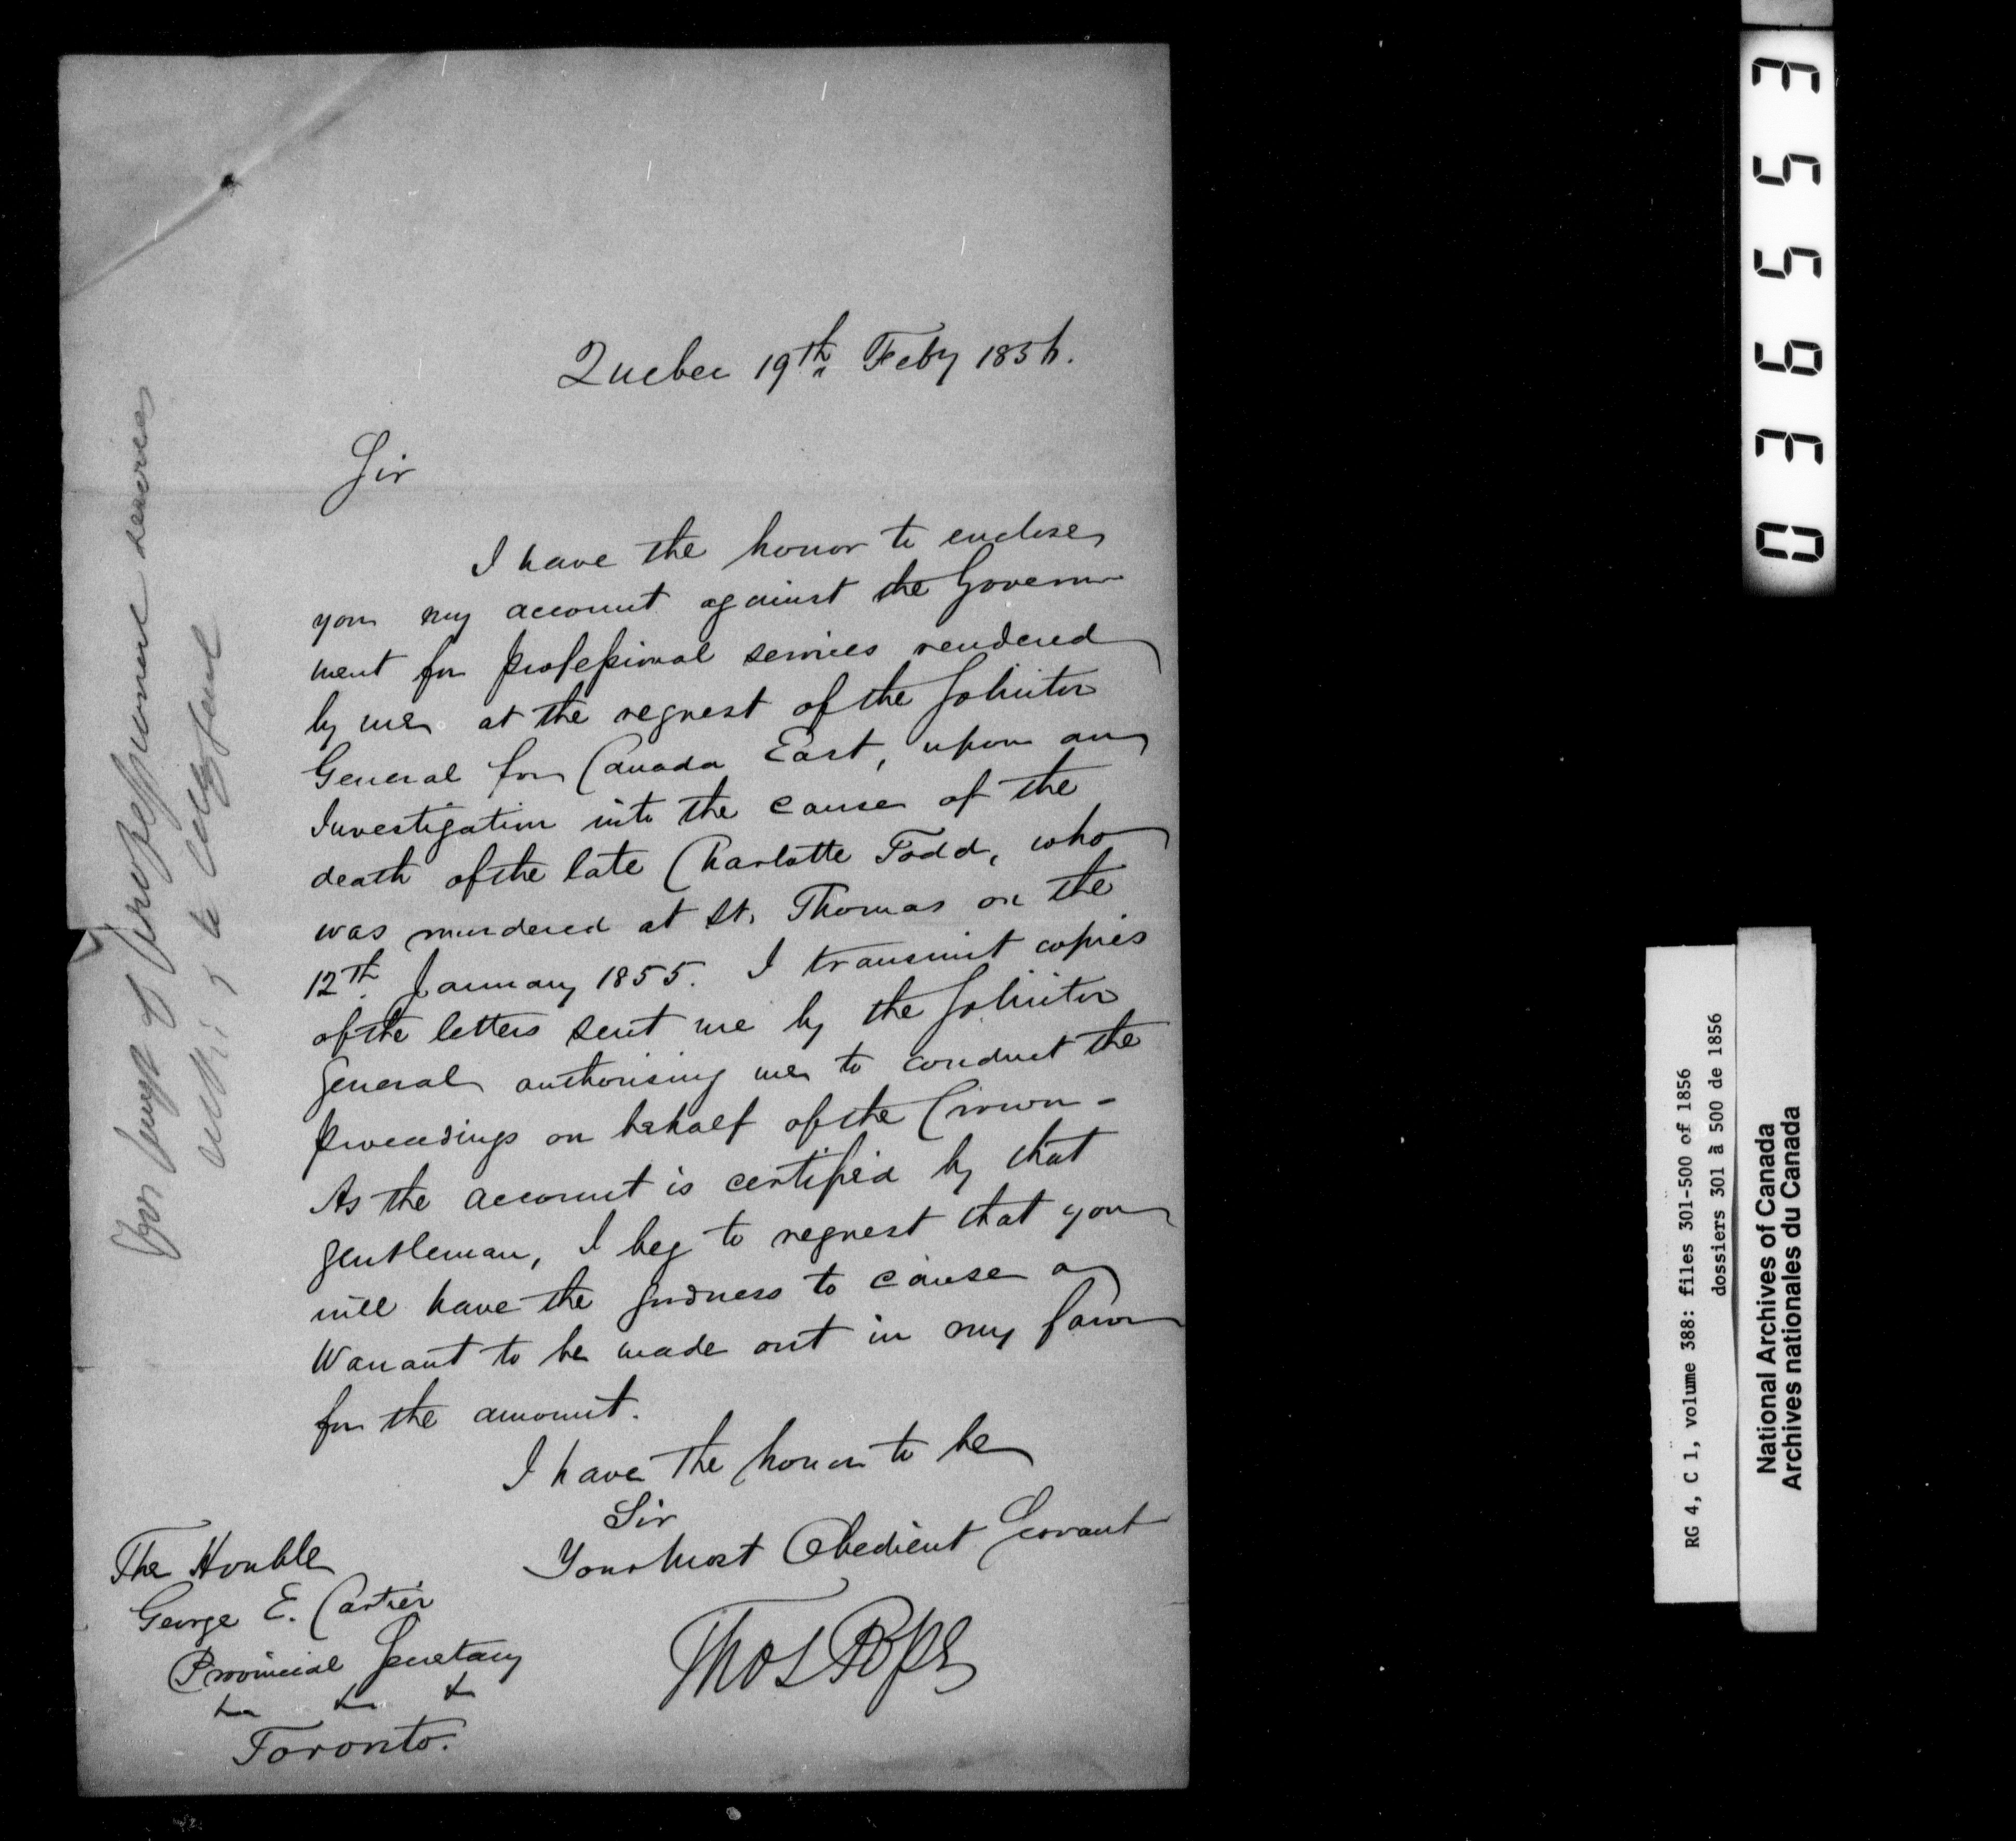 Quebec 19th Feby 1856.
Sir
I have the honor to enclose
you my account against the Govern
ment for professional services rendered
by me at the request of the Solicitor
General for Canada East, upon an
Investigation into the cause of the
death of the late Charlotte Todd, who
was murdered at St. Thomas on the
12th January 1855. I transmit copies
of the letters sent me by the Solicitor
General authorising me to conduct the
proceedings on behalf of the Crown -
As the account is certified by that
gentleman, I beg to request that you
will have the goodness to cause a
Warrant to be made out in my favor
for the amount.
I have the honor to be
Sir
Your Most Obedient Servant
Thos Pope
The Honble
George E. Cartier
Provincial Secretary
Toronto.
professional services
036553
RG 4, C 1, volume 388: files 301-500 of 1856
dossiers 301 à 500 de 1856
National Archives of Canada
Archives nationales du Canada